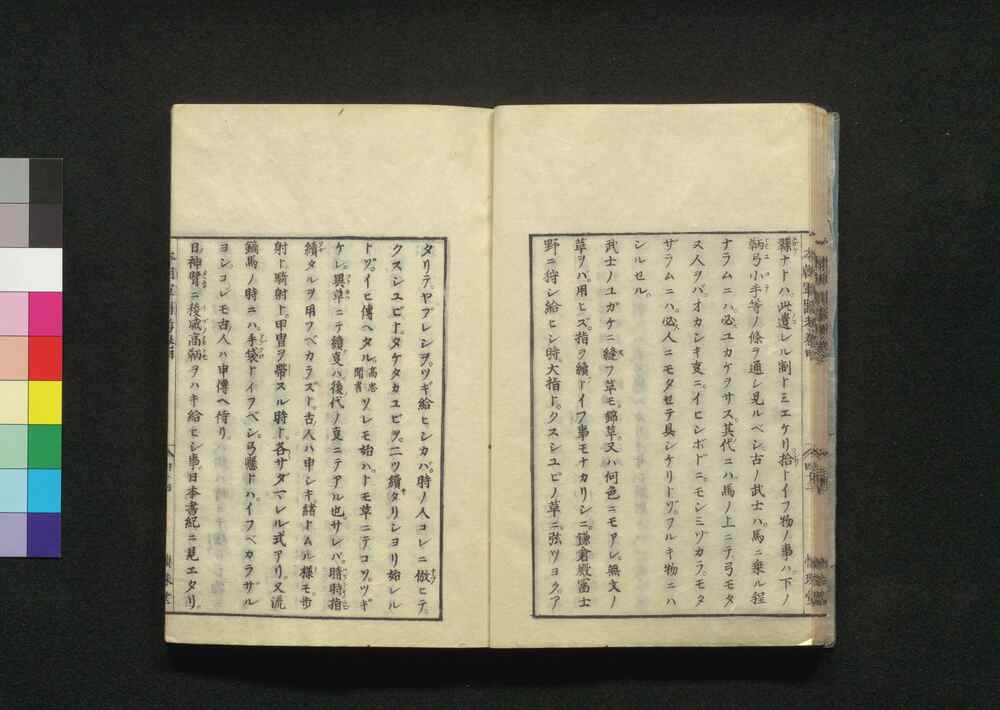 縣ナドハ此遺レル制トミエケリ拾トイフ物ノ事ハ下ノ
鞆弓小手等ノ條ヲ通シ見ルベシ古ノ武士ハ馬ニ乗ル程
ナラムニハ必ユカケヲサス其代ニハ馬ノ上ニテ弓モタ
ス人ヲバオカシキ叓ニイヒシホドニモシミヅカラモタ
ザラムニハ必人ニモタセテ具シケリトゾフルキ物ニハ
シルセル
武士ノユガケニ縫フ革モ錦革又ハ何色ニモアレ無文ノ
革ヲバ用ヒズ指ヲ續トイフ事モナカリシニ鎌倉殿冨士
野ニ狩シ給ヒシ時大指トクスシユビノ革ニ弦ツヨクア
タリテヤブレシヲツギ給ヒシカバ時ノ人コレニ倣ヒテ
クスシユビトタケタカユビヲ二ツ續タリシヨリ始レル
トゾイヒ傳ヘタル高忠聞書ソレモ始ハトモ革ニテコソツギ
ケレ異革ニテ續叓ハ後代ノ叓ニテアル也サレバ晴時指
續タルヲ用フベカラズト古人ハ申シキ緒トムル様モ歩
射ト騎射ト甲冑ヲ帶スル時ト各サダマレル式アリ又流
鏑馬ノ時ニハ手袋トイフベシ弓懸トハイフベカラザル
ヨシコレモ古人ハ申傳ヘ侍リ
日神臂ニ稜威高鞆ヲハキ給ヒシ事日本書紀ニ見エタリ